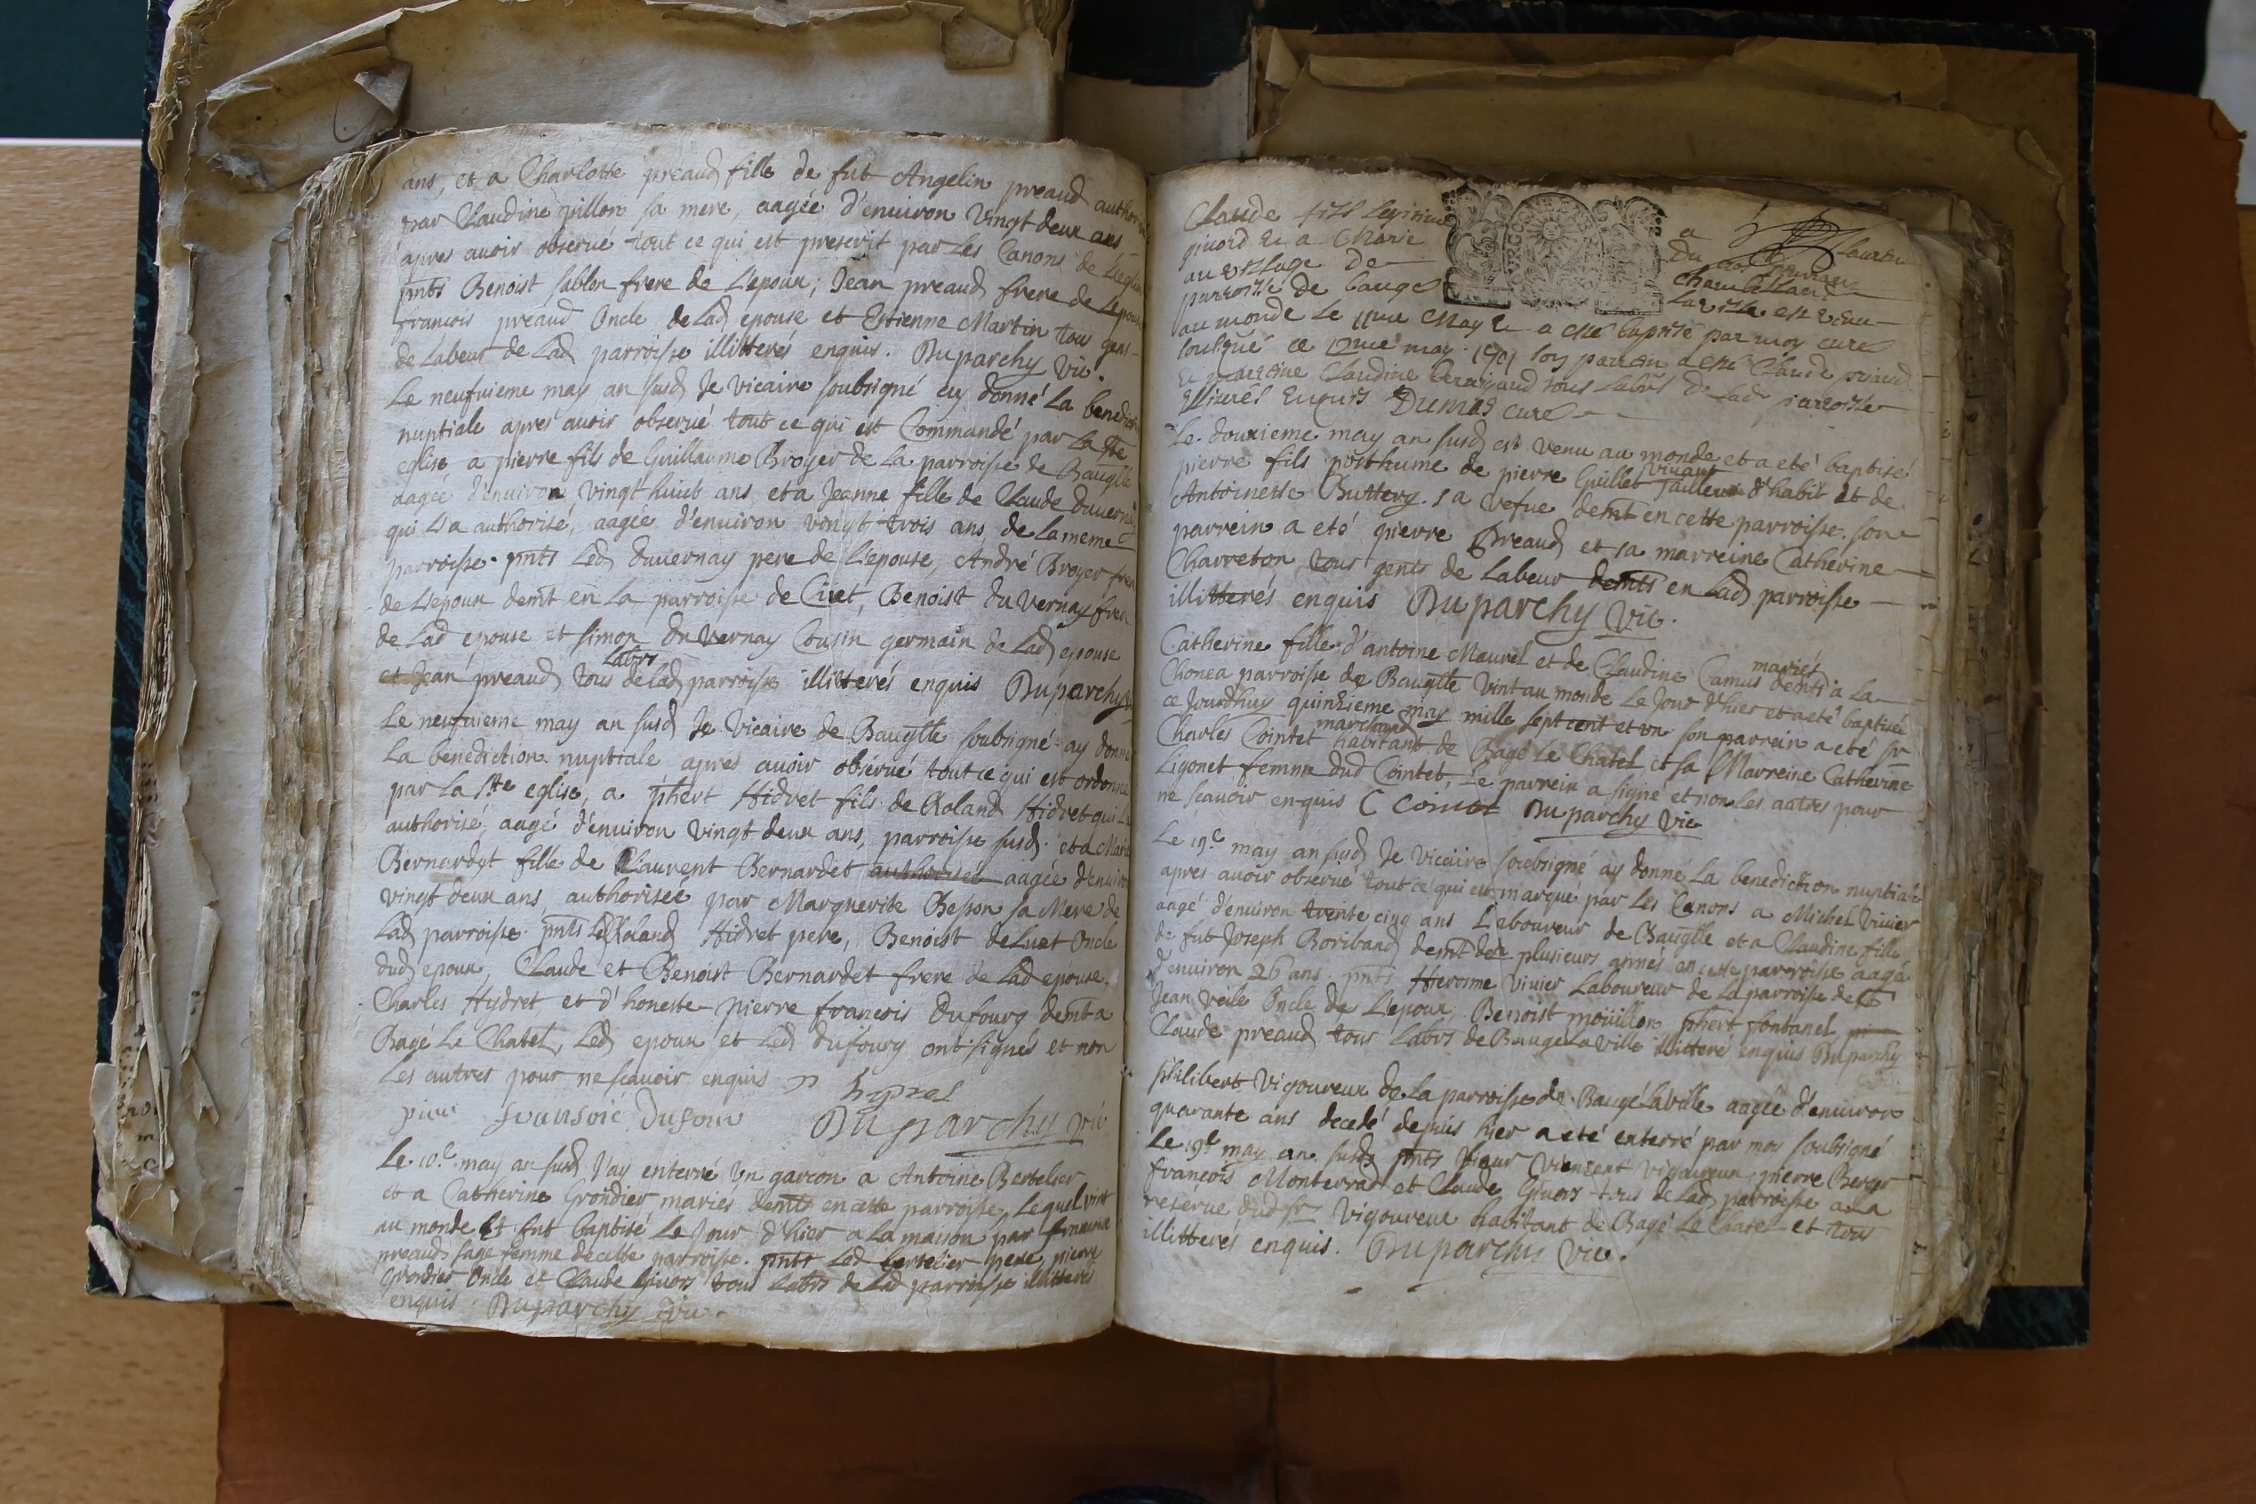 ans, et a Charlotte preaud fille de fut Angelin preaud
par Claudine pillon sa mere, aagée d'environ Vingt deux ans
apres avoir observé tout ce qui est prescrit par Les Canons de Leglise
pnts Benoist sablon frere de L'epoux; Jean preaud frere de
francois preaud Oncle de Lad epouse et Estienne Martin tous gens
de Labeur de Lad parroisse illitterés enquis. Duparchy vic.
Le neufvieme may an susd Je vicaire soubsigné ay donné La
nuptiale apres avoir observé tout ce qui est Commandé par La Ste
eglise a pierre fils de Guillaume Broyer de La parroisse de Bauglle
aagée d'environ vingt huict ans et a Jeanne fille de Claude
qui L'a authorisé, aagée d'environ vingt trois ans, de La meme
parroisse. pnts Led duvernay pere de L'epouse, André Broyer
de L'epoux demt en La parroisse de Benoist du Vernay
de Lad epouse et simon du Vernay Cousin germain de Lad epouse
Labrs
et Jean preaud tous de Lad parroisse illitterés enquis Duparchy
Le neufvieme may an susd Je Vicaire de Bauglle soubsigné ay donné
La benediction nuptiale apres avoir observé tout ce qui est ordonné
par La Ste eglise, a phert Hidret fils de Roland Hidret qui
authorisé, aagé d'environ vingt deux ans, parroisse susd. et a
Bernardet fille de Laurent Bernardet authorisée aagée
vingt deux ans authorisée par Marguerite Besson sa Mere de
Lad parroisse. pnts Led Roland Hidret pere, Benoist de Luet Oncle
dud epoux, Claude et Benoist Bernardet frere de Lad epouse,
Charles Hydret et d'honeste pierre francois Dufourg demt a
Bagé Le Chatel, Led epoux et Led dufourg ont signés et non
Les autres pour ne scavoir enquis
Duparchy vic
Le 10e. may an susd J'ay enterré Un garcon a Antoine Bertelier
et a Catherine Grondier mariés demts en cette parroisse, Lequel vint
au monde et fut baptisé Le Jour d'hier a La maison par
preaud sage femme de cette parroisse. pnts Led bertelier pere, pierre
grondier Oncle et Claude Givors tous Labrs de Lad parroisse illitterés
enquis. Duparchy vic.
Claude fils Legitime a
et a Marie
au village de
parroisse de bauge La ville est venu
au monde le 11me May et a esté baptisé par moy curé
soubsigné ce 12me may. 1701 son parrain a esté Claude
et marrine Claudine tous Labrs de Lad parroisse
enquis Dumas curé
Le douxieme may an susd est venu au monde et a eté baptisé
pierre fils posthume de pierre Guillet vivant Tailleur d'habit et de
Antoinette Buttery. sa vefue demt en cette parroisse. son
parrein a eté pierre Preaud et sa marreine Catherine
Charreton tous gents de Labeur demts en Lad parroisse
illitterés enquis Duparchy vic.
Catherine fille d'antoine Maurel et de Claudine Camus mariés demts a La
Chonea parroisse de Baugtte vint au monde Le Jour d'hier et a eté baptisée
ce Jourd'huy quinzieme may mille sept cent et un son parrein a eté sr
Charles Cointet marchand habitant de Bagé Le Chatel et sa Marreine Catherine
Ligonet femme dud Cointet, Le parrein a signé et non Les autres pour
ne scavoir enquis C Cointet Duparchy vic
Le 19e may an susd Je Vicaire soubsigné ay donné La benediction nuptiale
apres avoir observé tout ce qui est marqué par Les Canons a Michel Vivier
aagé d'environ trente cinq ans Laboureur de Baugtte et a Claudine fille
de fut Joseph Boriband demt des plusieurs annes en cette parroisse aagée
d'environ 26 ans. pnts Hierosme vivier Laboureur de La parroisse de
Jean veile Oncle de L'epoux, Benoist mouillon, phert fontanel
Claude preaud tous Labrs de Bauge La ville illitteré enquis Duparchy
philibert Vigoureux de La parroisse de Baugé La ville aagée d'environ
quarante ans decedé depuis hier a eté enterré par moy soubsigné
Le 19e may an susd pnts Vincent Vigoureux, pierre Berger
francois Monterrad et Claude Givors tous de Lad parroisse a La
reserve dud sr Vigoureux habitant de Bagé Le Chatel et tous
illitterés enquis. Duparchy vic.